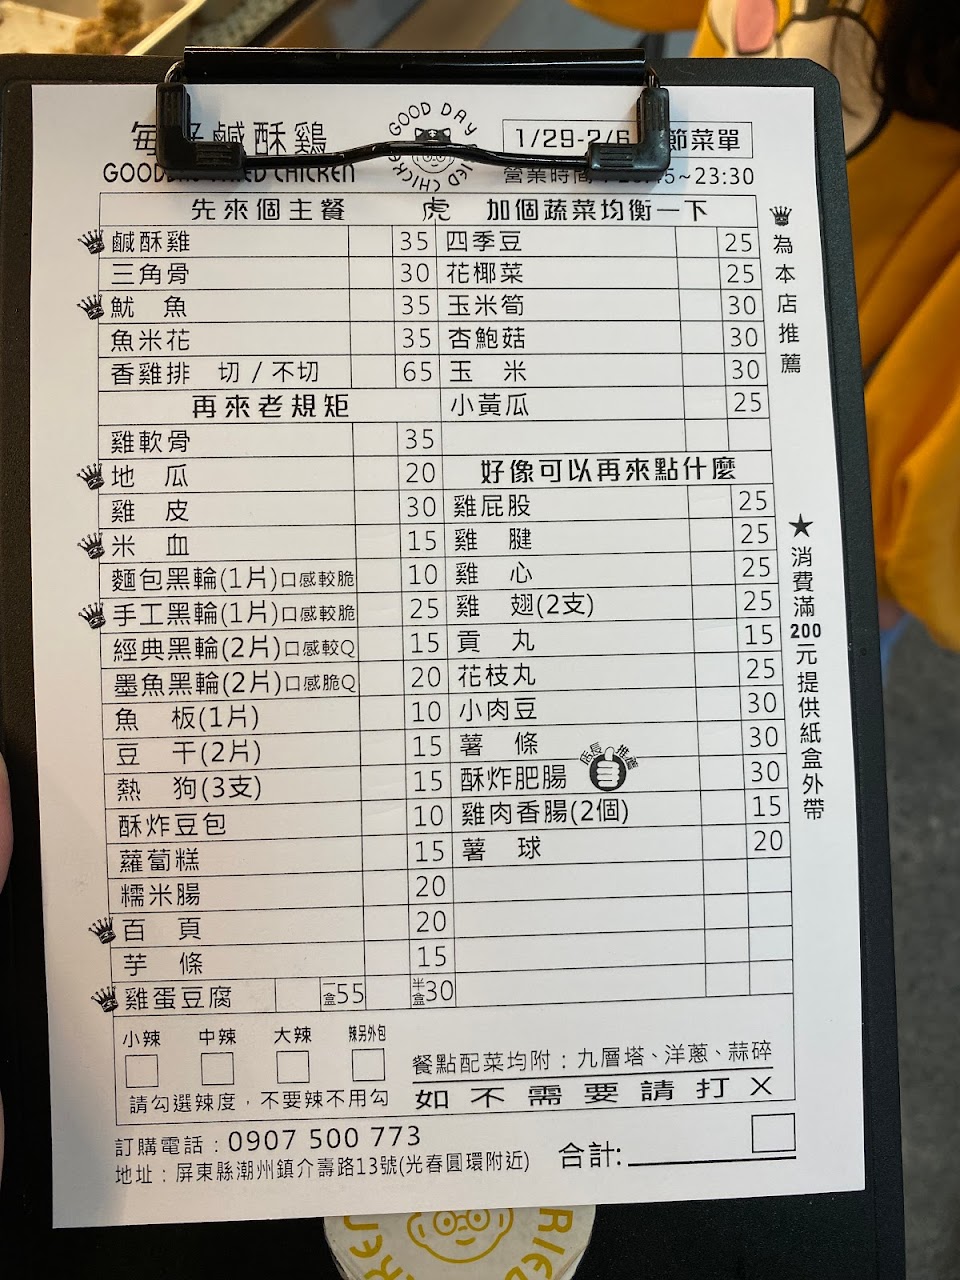 鹹酥鷄
GOOD DAY
FRIED CHICKEN
1/29-2/6 節菜單
CHICKEN
營業時間
~23:30
先來個主餐
虎
加個蔬菜均衡一下
鹹酥雞 35 四季豆 25
三角骨 30 花椰菜 25
魷 魚 35 玉米筍 30
魚米花 35 杏鮑菇 30
香雞排 切 / 不切 65 玉 米 30
再來老規矩 小黃瓜 25
雞軟骨 35
地 瓜 20 好像可以再來點什麼
雞 皮 30 雞屁股 25
米 血 15 雞 腱 25
麵包黑輪(1片)口感較脆 10 雞 心 25
手工黑輪(1片)口感較脆 25 雞 翅(2支) 25
經典黑輪(2片)口感較Q 15 貢 丸 15
墨魚黑輪(2片)口感脆Q 20 花枝丸 25
魚 板(1片) 10 小肉豆 30
豆 干(2片) 15 薯 條 30
熱 狗(3支) 15 酥炸肥腸 店長推薦 30
酥炸豆包 10 雞肉香腸(2個) 15
蘿蔔糕 15 薯 球 20
糯米腸 20
百 頁 20
芋 條 15
雞蛋豆腐 一盒55 半盒30
為本店推薦
★消費滿200元提供紙盒外帶
小辣 中辣 大辣 辣另外包
請勾選辣度，不要辣不用勾
餐點配菜均附：九層塔、洋蔥、蒜碎
如不需要請打X
訂購電話：0907 500 773
地址：屏東縣潮州鎮介壽路13號(光春圓環附近)
合計: